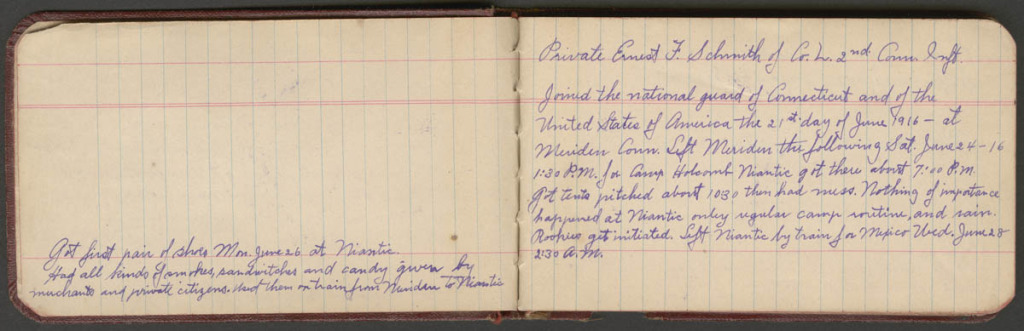 Got first pair of shoes Mon. June 26. at Niantic
Had all kinds of smokes, sandwitches and candy given by
merchants and private citizens. and them on train from Meriden to Niantic
Private Ernest F. Schmith of Co. L. 2nd Conn. Inft.
Joined the national guard of Connecticut and of the
United States of America the 21st day of June 1916 - at
Meriden Conn. Left Meriden the following Sat. June 24 - 16
1:30 P.M. for Camp Holcomb Niantic got there about 7:00 P.M.
Got tents pitched about 1030 then had mess. Nothing of importance
happened at Niantic only regular camp routine, and rain.
Rookies get initiated. Left Niantic by train for Mexico Wed. June 28
2:30 A.M.